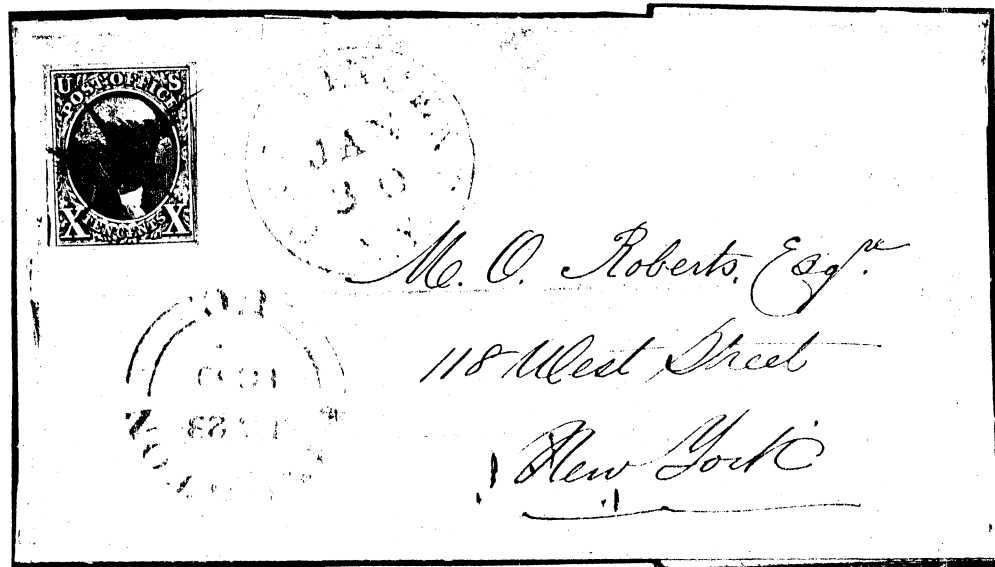 U S
POST OFFICE
X TEN CENTS X
JAN
30
M. O. Roberts, Esqre.
118 West Street
New York